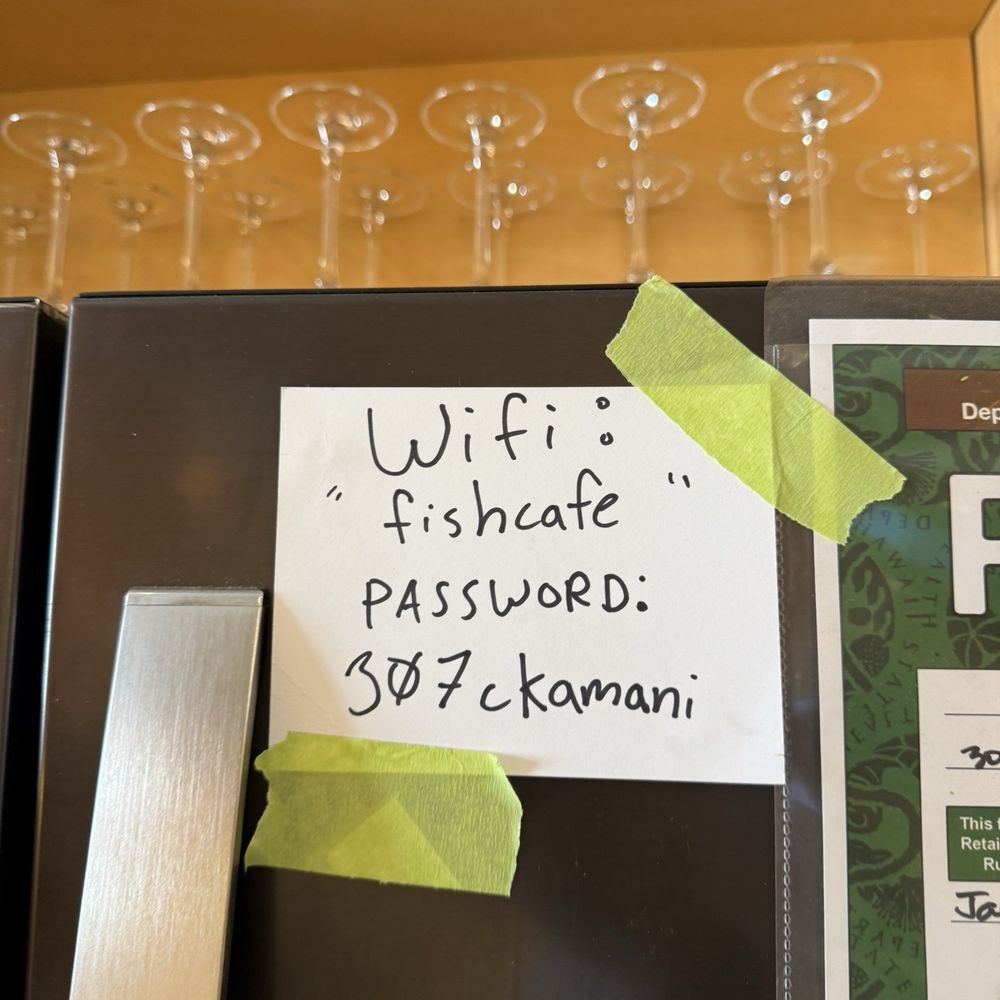 Wifi:
"fishcafe"
PASSWORD:
3Ø7ckamani
Dep
30
This f
Retai
Ru
Ja